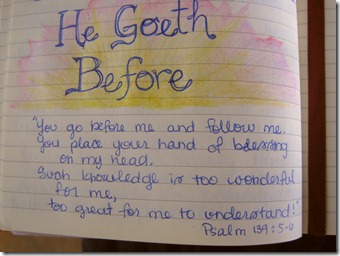 He Goeth
Before
"You go before me and follow me.
You place your hand of blessing
on my head.
Such knowledge is too wonderful
for me,
too great for me to understand!"
Psalm 139:5-6